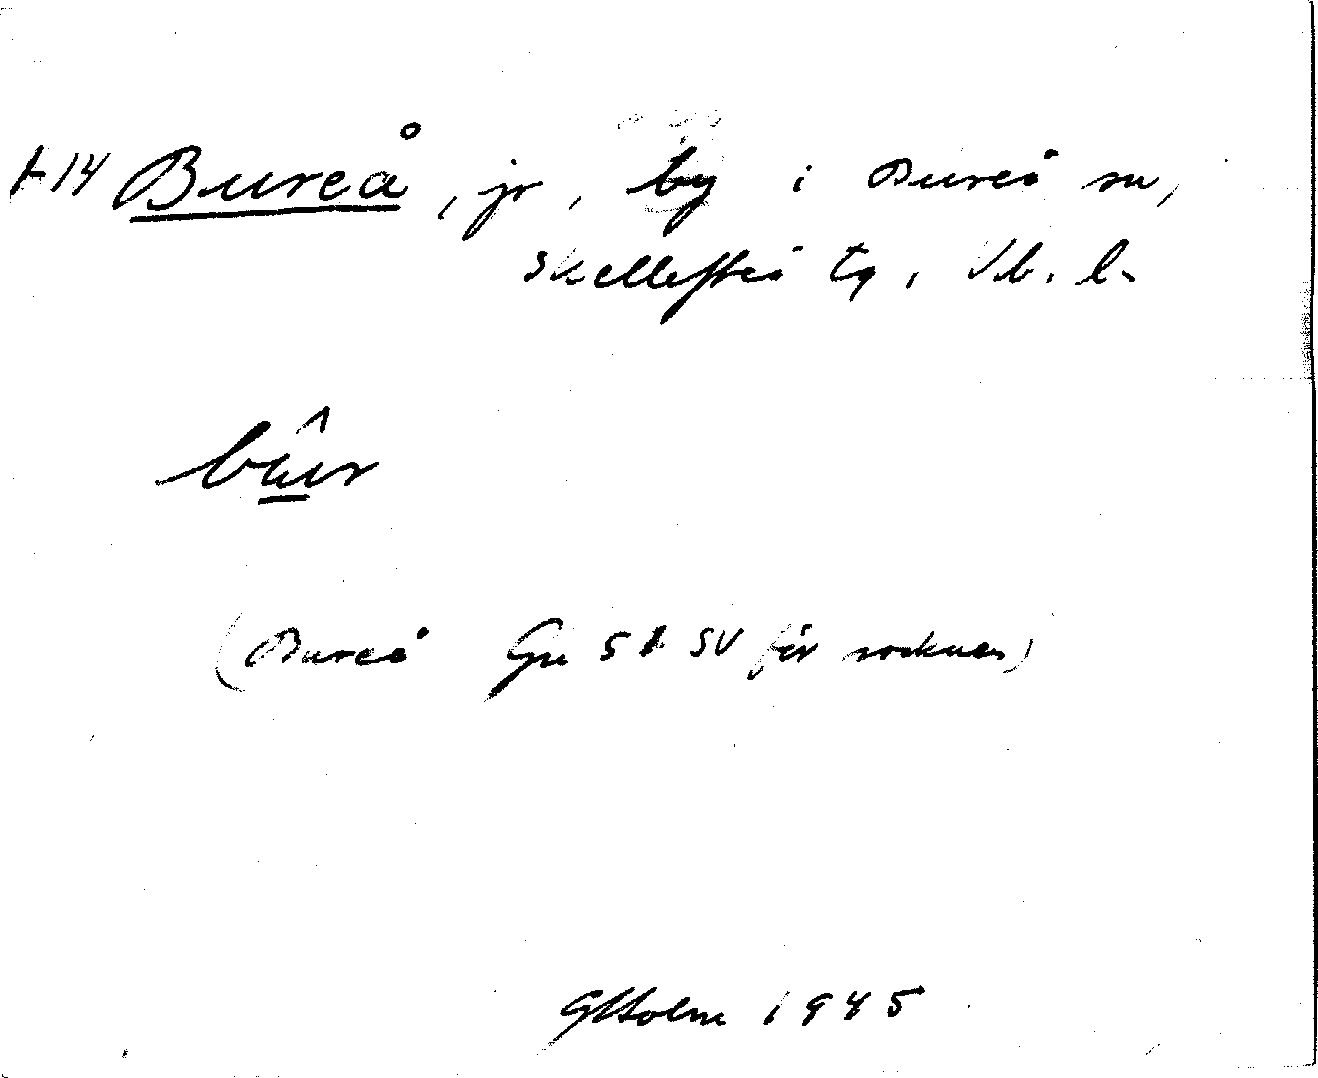 1-14 Bureå, jr, by i Bureå sn,
Skellefteå tg, Vb. l.
bûur
(Bureå Gm 51 SV för socknen)
GHolm 1945